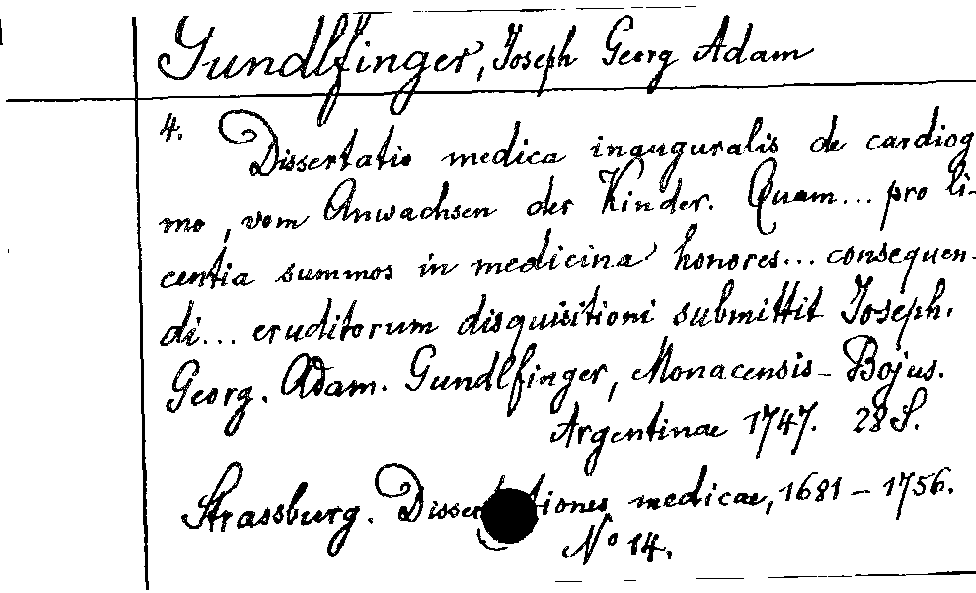 Gundlfinger, Joseph Georg Adam
4.
Dissertatio medica inauguralis de cardiog
mo, vom Anwachsen der Kinder. Quam... pro li-
centia summos in medicina honores... consequen-
di... eruditorum disquisitioni submittit Joseph.
Georg. Adam. Gundlfinger, Monacensis-Bojus.
Argentinae 1747. 28 S.
Strassburg. Disser tiones medicae, 1681-1756.
No 14.